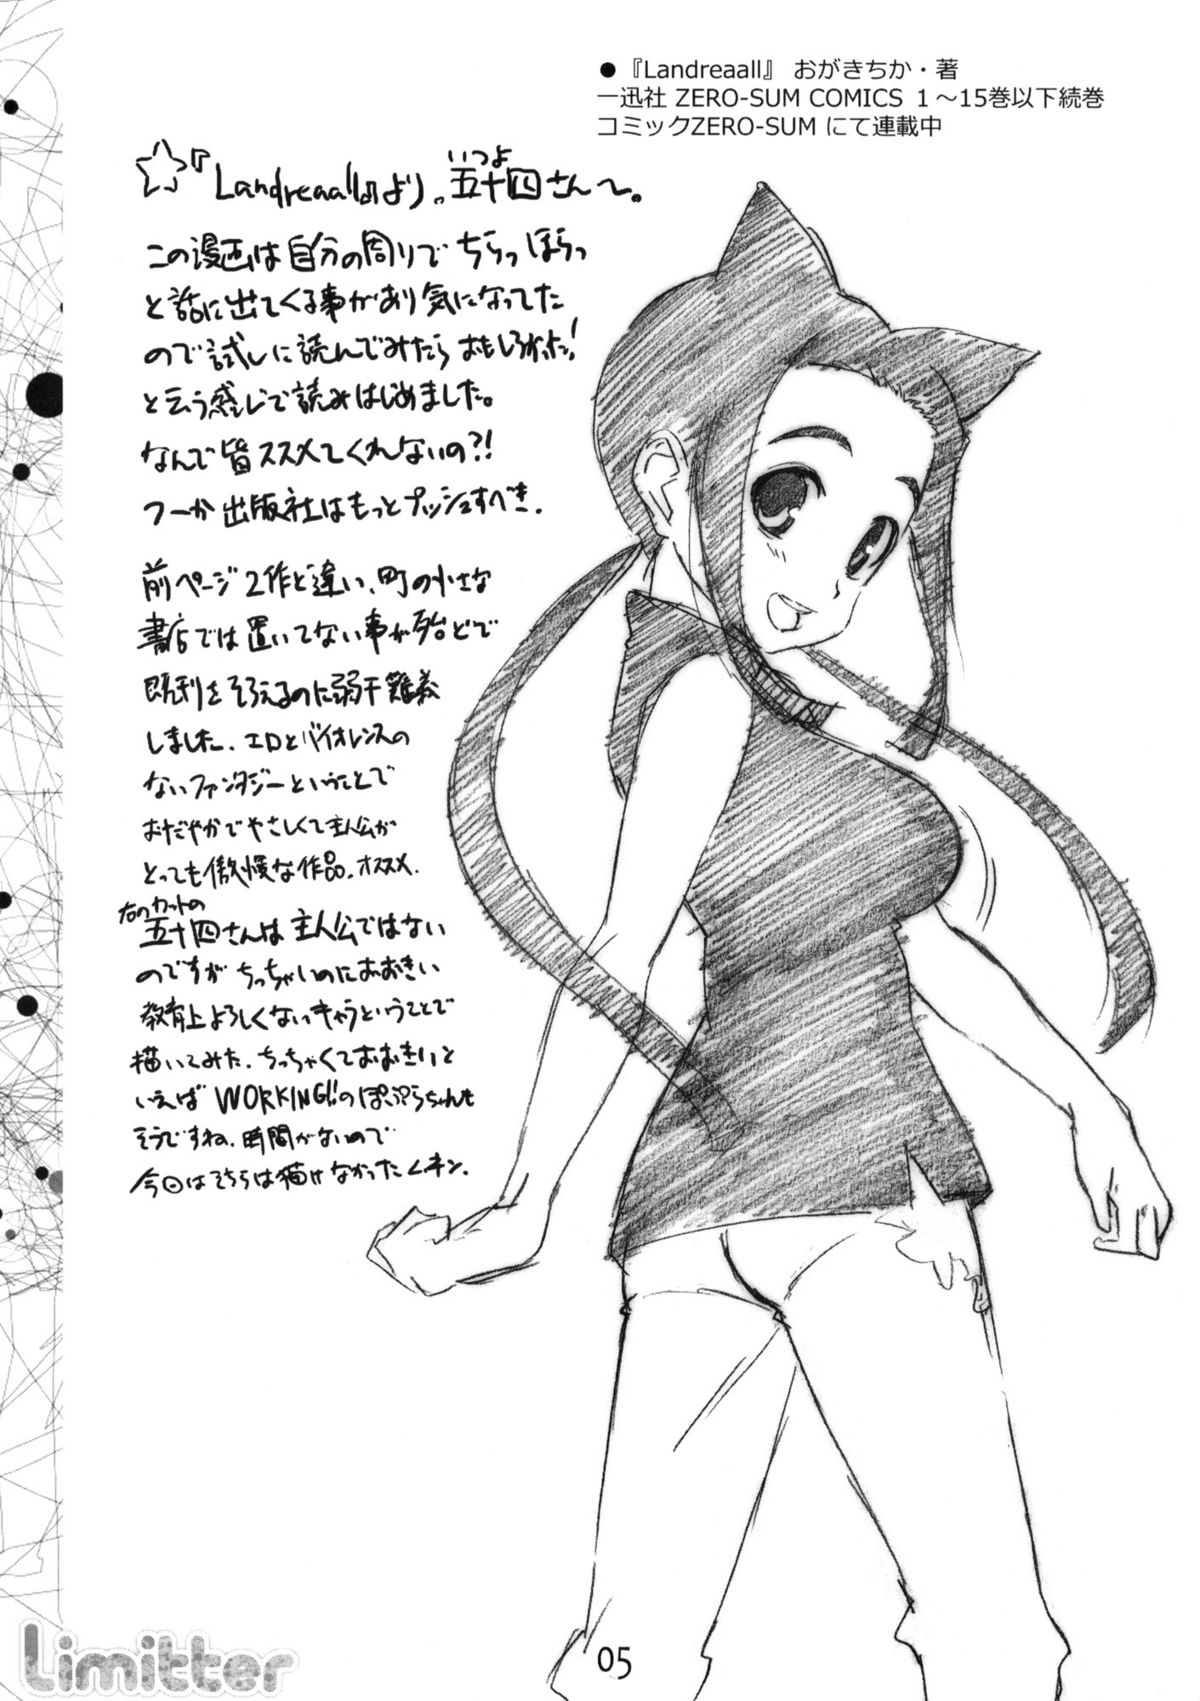 ●『Landreaall』 おがきちか・著
一迅社 ZERO-SUM COMICS 1～15巻以下続巻
コミックZERO-SUM にて連載中
☆『Landreaall』より。五十四さん～。
いつよ
この漫画は自分の周りでちらっほらっ
と話に出てくる事があり気になってた
ので試しに読んでみたらおもしろかった!
と云う感じで読みはじめました。
なんで皆ススメてくれないの?!
つーか出版社はもっとプッシュすべき.
前ページ2作と違い、町の小さな
書店では置いてない事が殆どで
既刊をそろえるのに弱干難義
しました. エロとバイオレンスの
ないファンタジーということで
おだやかでやさしくて主人公が
とっても傲慢な作品。オススメ.
右のカットの
五十四さんは主人公ではない
のですがちっちゃいのにおおきい
教育上よろしくないキャラということで
描いてみた. ちっちゃくておおきいと
いえばWORKING!!のぽぷらちゃんも
そうですね. 時間がないので
今回はそちらは描けなかったムネン.
05
Limitter